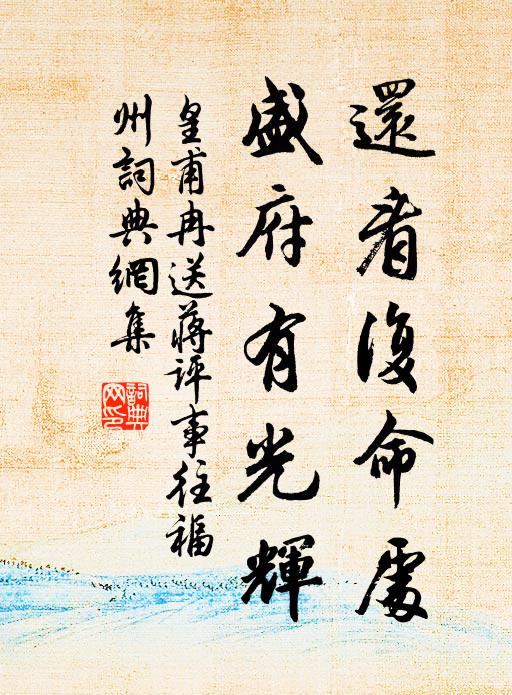 還看復命處
盛府有光輝
皇甫冉送蔣評事往福
州詞典網集
詞典
网印